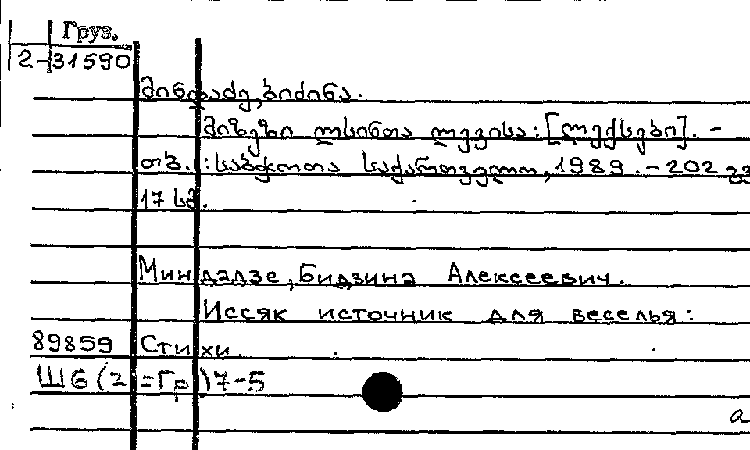 Груз.
2-31590
მინდაძე, ბიძინა.
მიზეზი ლხინთა ლევისა: [ლექსები]. -
თბ. : საბჭოთა საქართველო, 1989. - 202 გვ
17 სმ.
Миндадзе, Бидзина Алексеевич.
Иссяк источник для веселья:
89859 Стихи.
Ш6(2=Гр)7-5
а